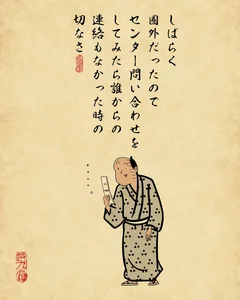 しばらく
圏外だったので
センター問い合わせを
してみたら誰からの
連絡もなかった時の
切なさ